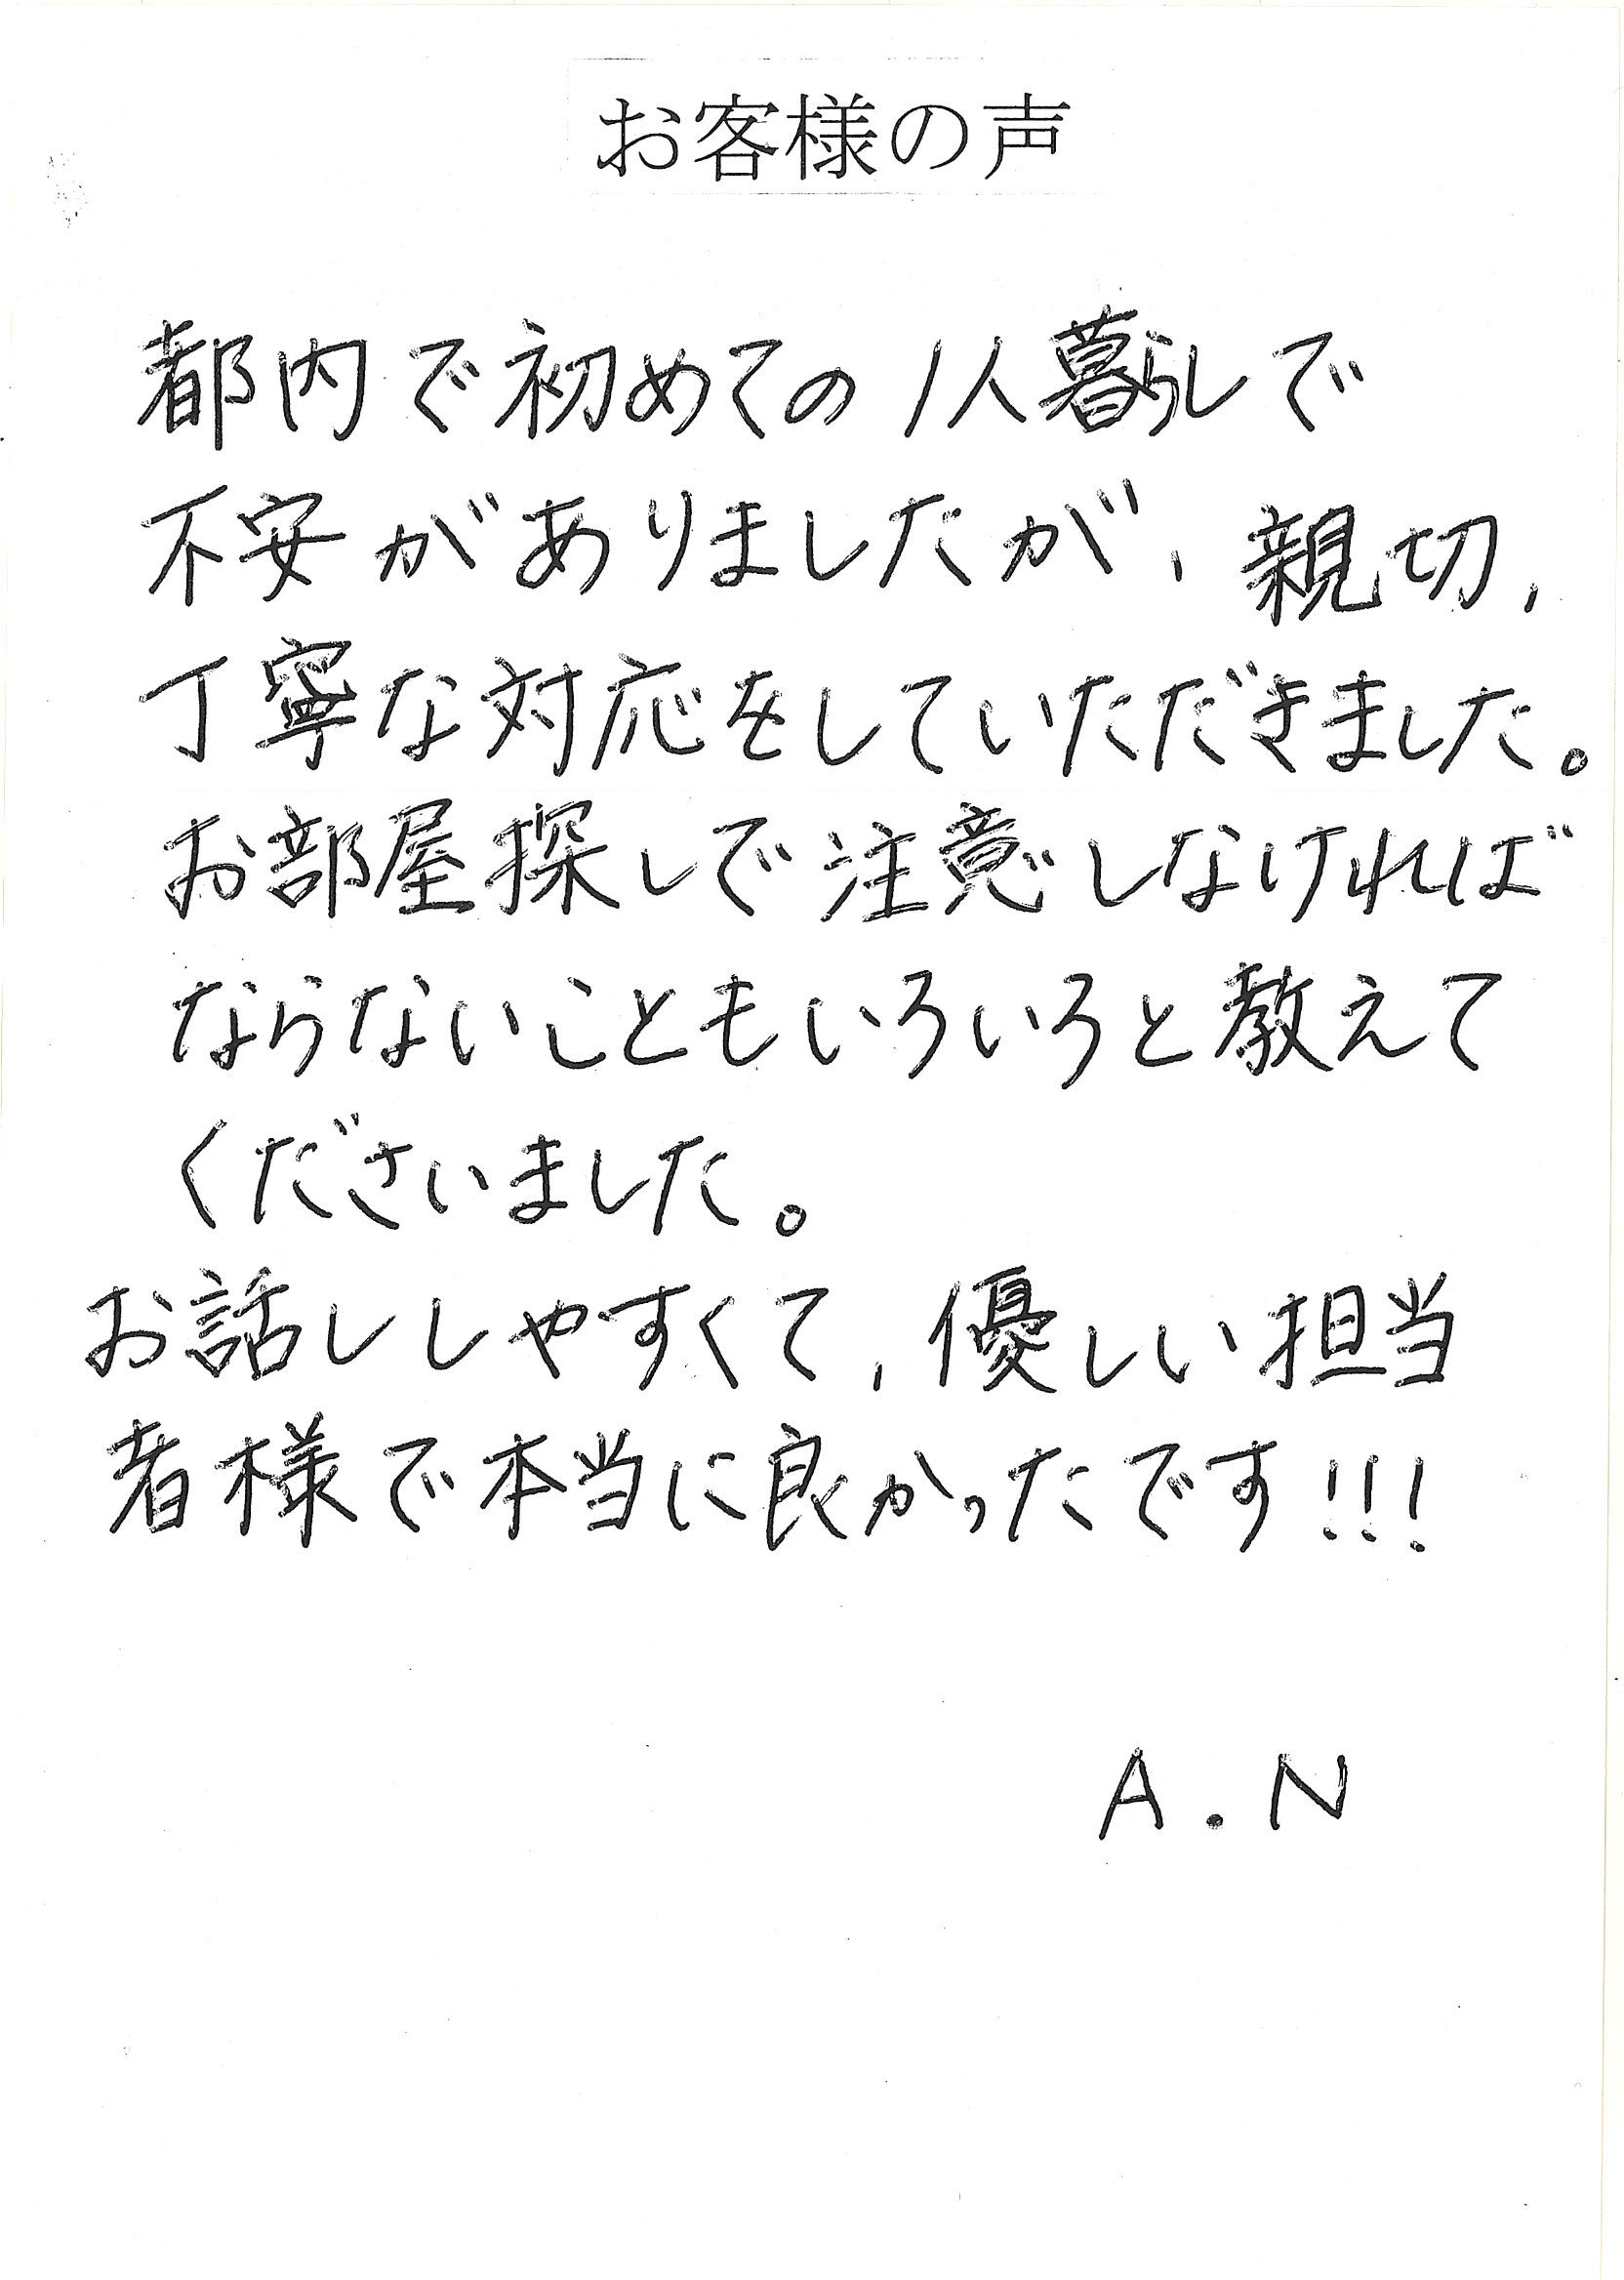 お客様の声
都内で初めての1人暮らしで
不安がありましたが、親切、
丁寧な対応をしていただきました。
お部屋探しで注意しなければ
ならないこともいろいろと教えて
くださいました。
お話ししやすくて、優しい担当
者様で本当に良かったです!!!
A.N